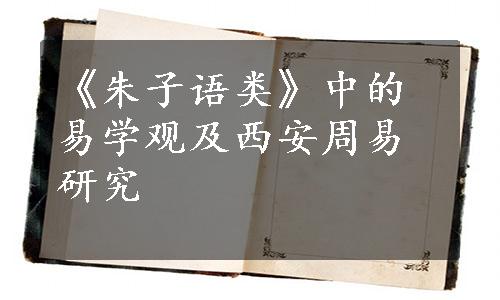 《朱子语类》中的
易学观及西安周易
研究